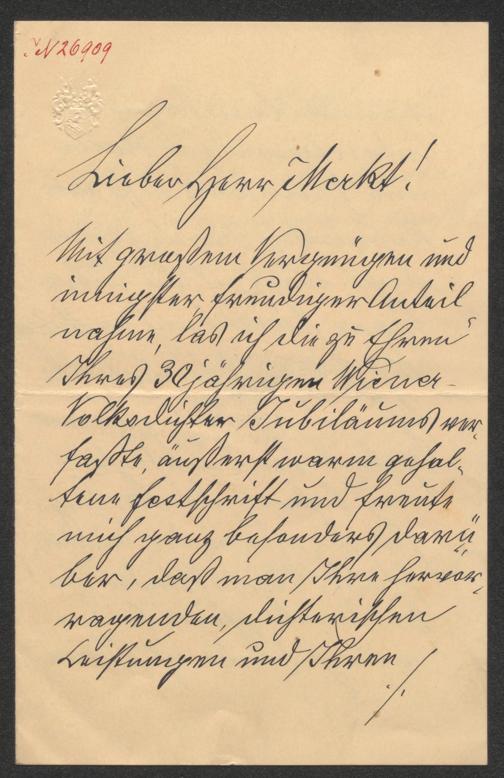 IN 26909
Lieber Herr Merkt!
Mit großem Vergnügen und
innigster, freudiger Anteil
nahme, las ich die zu Ehren
Ihres 30jährigen Wiener-
Volksdichter Jubiläums ver-
faßte, äußerst warm gehal-
tene Festschrift und freute
mich ganz besonders darü
ber, daß man Ihre hervor-
ragenden, dichterischen
Leistungen und Ihren
./.